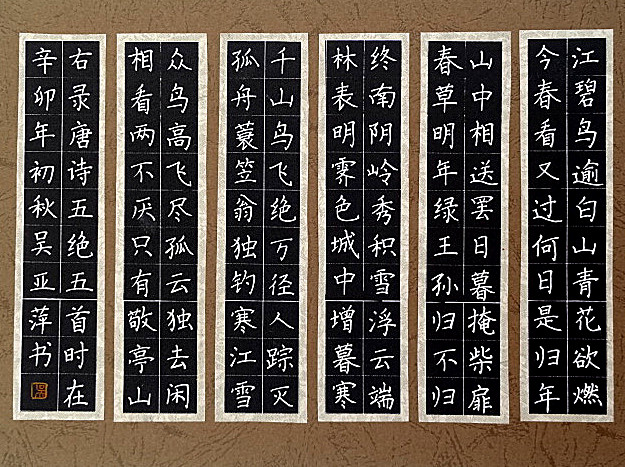 江碧鸟逾白山青花欲燃
今春看又过何日是归年
山中相送罢日暮掩柴扉
春草明年绿王孙归不归
终南阴岭秀积雪浮云端
林表明霁色城中增暮寒
千山鸟飞绝万径人踪灭
孤舟蓑笠翁独钓寒江雪
众鸟高飞尽孤云独去闲
相看两不厌只有敬亭山
右录唐诗五绝五首时在
辛卯年初秋吴亚萍书